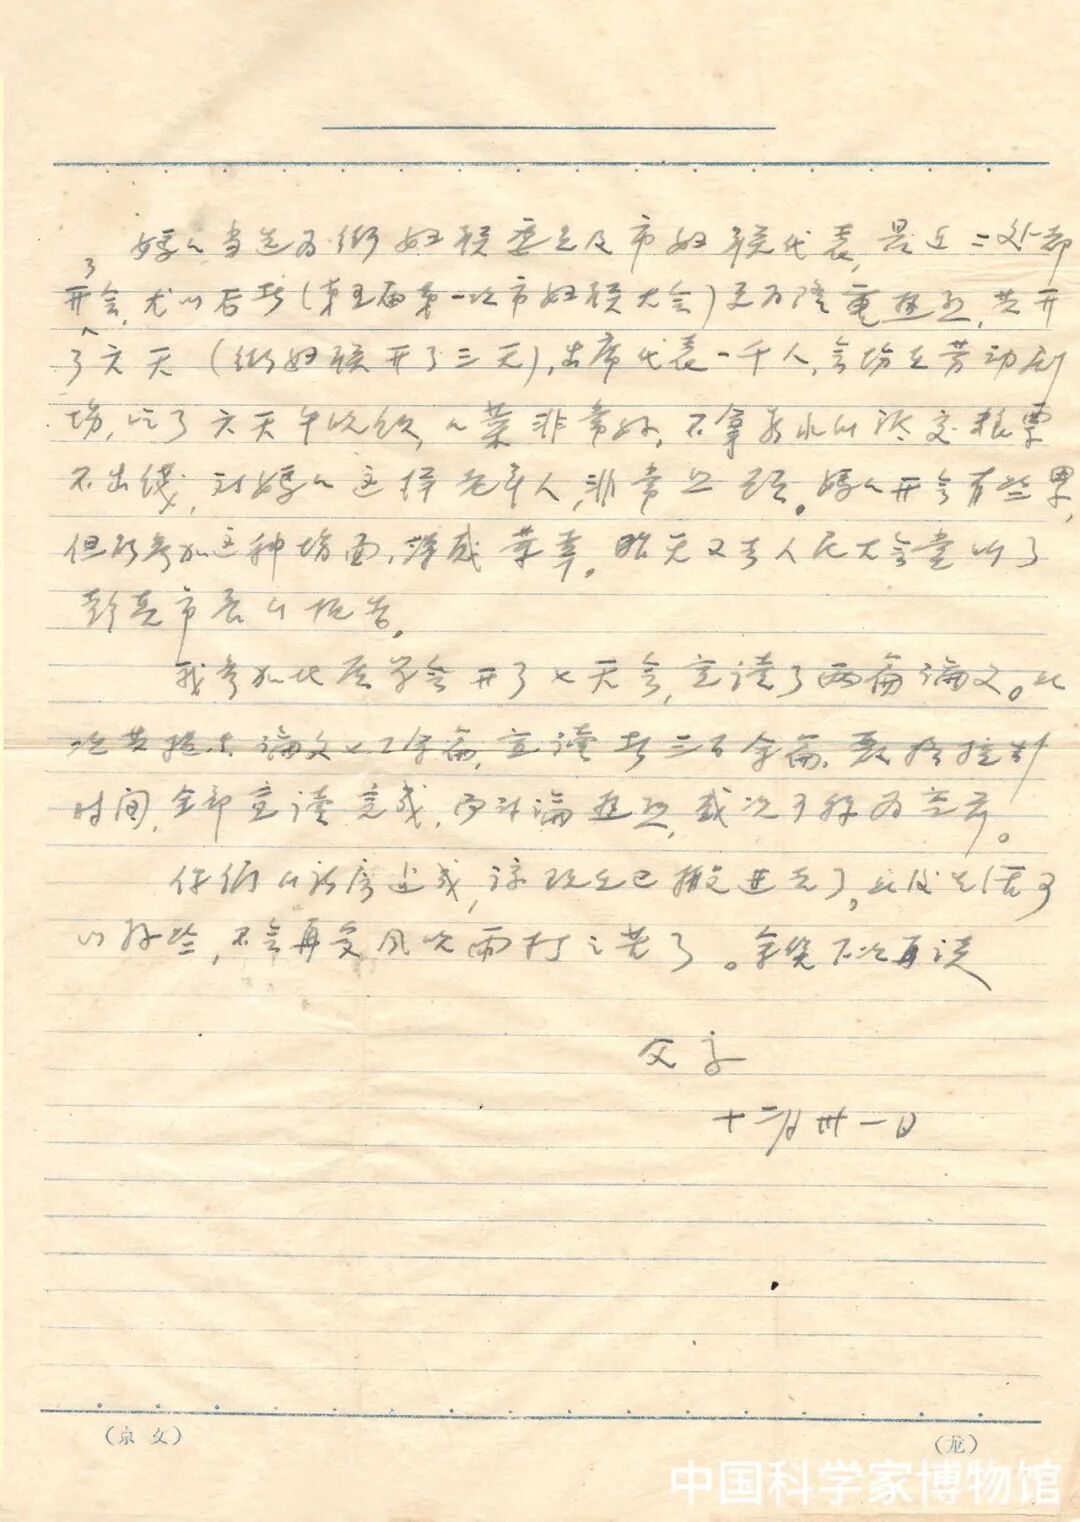 妈妈当选为街妇联委员及市妇联代表，最近二处都
开了会，尤以后者（第五届第一次市妇联大会）更为隆重热烈，共开
了六天（街妇联开了三天），出席代表一千人，会场在劳动剧
场，吃了六天午晚饭，菜非常好，不拿薪水的不交粮票
不出钱，对妈妈这样老年人，非常照顾。妈妈开会有些累，
但能参加这种场面，感荣幸。昨天又去人民大会堂听了
彭真市长的报告。
我参加地质学会开了七天会，宣读了两篇论文。此
次共提出论文七百余篇，宣读者三百余篇，严格控制
时间，全部宣读完成，而讨论热烈，或次可称为空前。
你们的新房建成，谅现在已搬进去了，此后生活可
以好些，不会再受风吹雨打之苦了。余俟下次再谈
父字
十二月卅一日
（京文）
（龙）
中国科学家博物馆